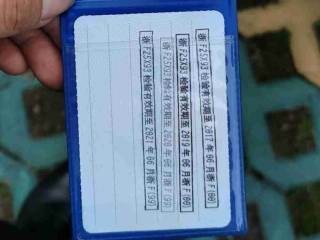 浙F25X93 检验有效期至2017年06月浙F(00)
浙F25X93 检验有效期至2019年06月浙F(00)
浙F25X93 检验有效期至2020年06月浙F(99)
浙F25X93 检验有效期至2021年06月浙F(99)